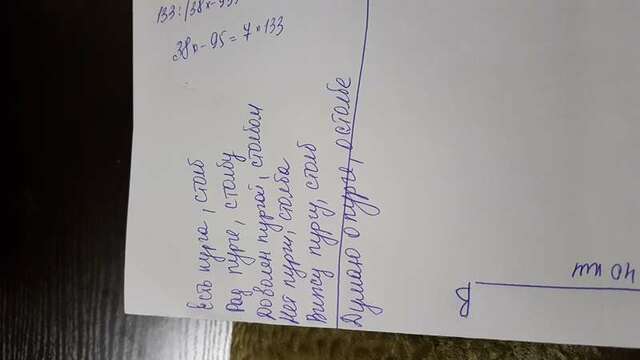 Есть пурга, столб
Рад пурге, столбу
Доволен пургой, столбом
Нет пурги, столба
Вижу пургу, столб
Думаю о пурге, о столбе
38x - 95 = 7 * 133
В
40 км